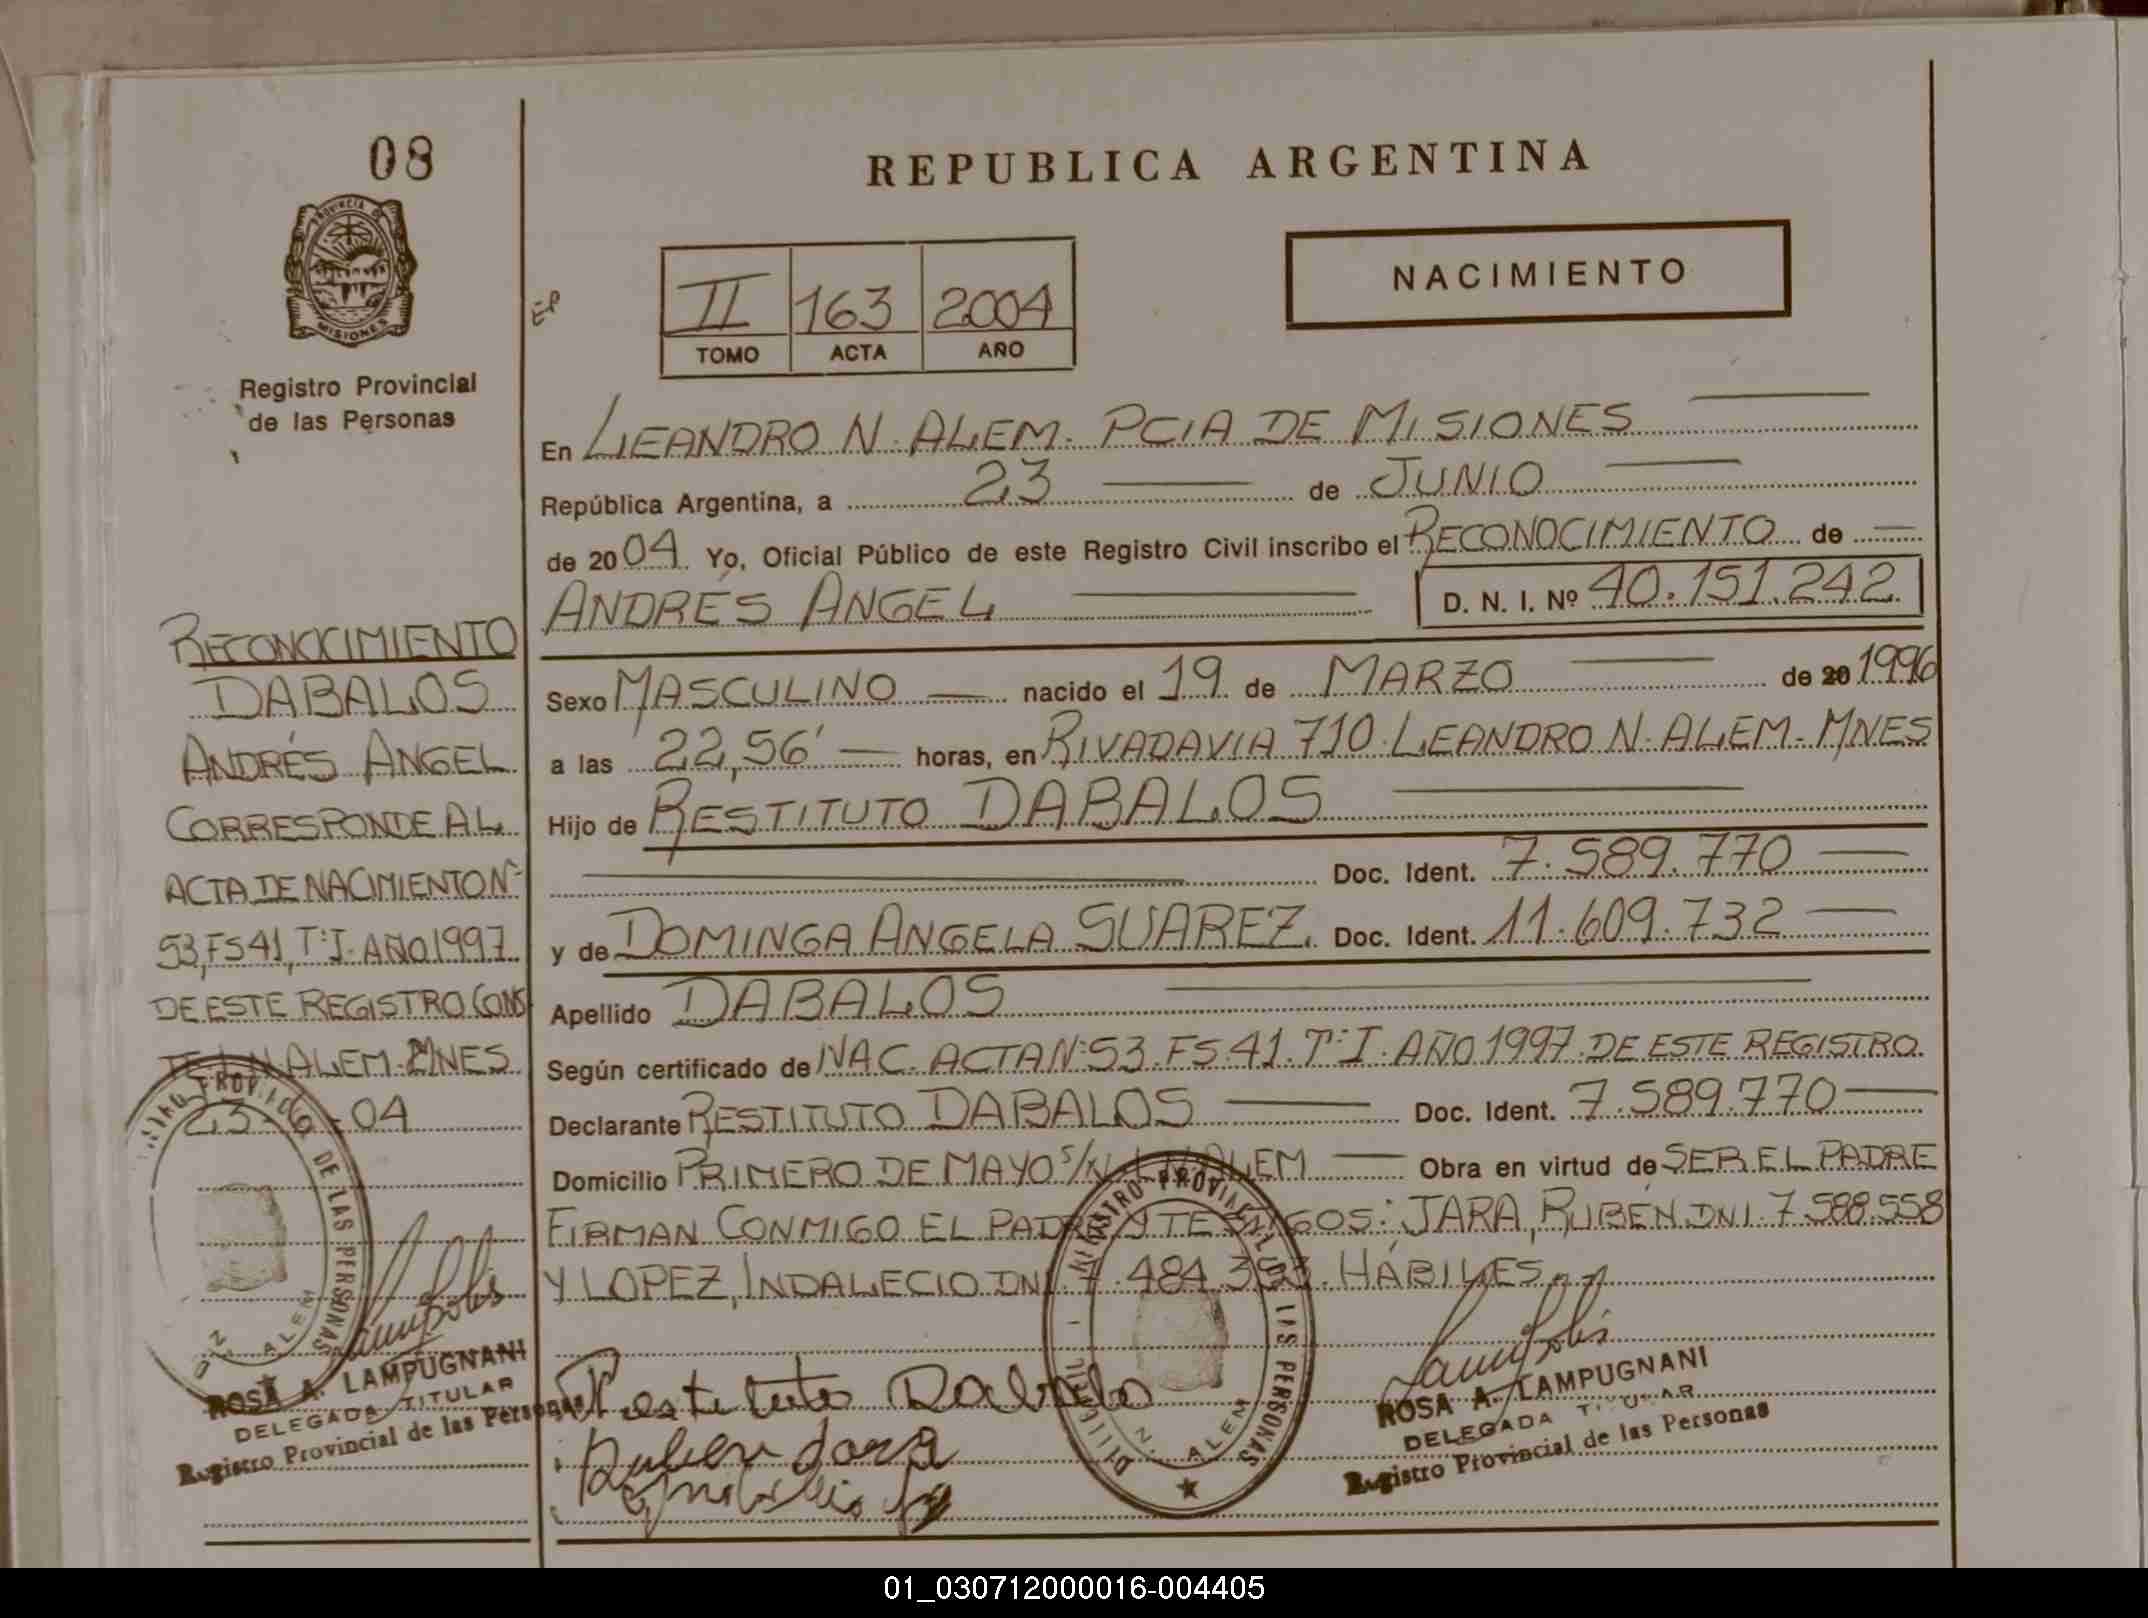 08
PROVINCIA DE
MISIONES
Registro Provincial
de las Personas
RECONOCIMIENTO
DABALOS
ANDRÉS ANGEL
CORRESPONDE AL
ACTA DE NACIMIENTO Nº
53, FS 41, Tº I. AÑO 1997
DE ESTE REGISTRO CONS
TE L N ALEM. MNES
23-6-04
DE LAS PERSONAS
N. ALEM
ROSA A. LAMPUGNANI
DELEGADA TITULAR
Registro Provincial de las Personas
REPUBLICA ARGENTINA
NACIMIENTO
II 163 2004
TOMO ACTA AÑO
En LEANDRO N. ALEM. PCIA DE MISIONES
República Argentina, a 23 de JUNIO
de 2004. Yo, Oficial Público de este Registro Civil inscribo el RECONOCIMIENTO de
ANDRÉS ANGEL D. N. I. Nº 40.151.242
Sexo MASCULINO nacido el 19 de MARZO de 20 1996
a las 22,56' horas, en RIVADAVIA 710. LEANDRO N. ALEM. MNES
Hijo de RESTITUTO DABALOS
Doc. Ident. 7.589.770
y de DOMINGA ANGELA SUAREZ. Doc. Ident. 11.609.732
Apellido DABALOS
Según certificado de NAC. ACTA Nº 53. FS 41. Tº I. AÑO 1997. DE ESTE REGISTRO
Declarante RESTITUTO DABALOS Doc. Ident. 7.589.770
Domicilio PRIMERO DE MAYO S/N. L.N.ALEM Obra en virtud de SER EL PADRE
FIRMAN CONMIGO EL PADRE Y TESTIGOS: JARA, RUBÉN DNI. 7.588.558
Y LOPEZ, INDALECIO DNI. 484 HÁBILES
Restituto Dabalos
Ruben Jara
REGISTRO PROVINCIAL DE LAS PERSONAS
N. ALEM
ROSA A. LAMPUGNANI
DELEGADA TITULAR
Registro Provincial de las Personas
01_030712000016-004405